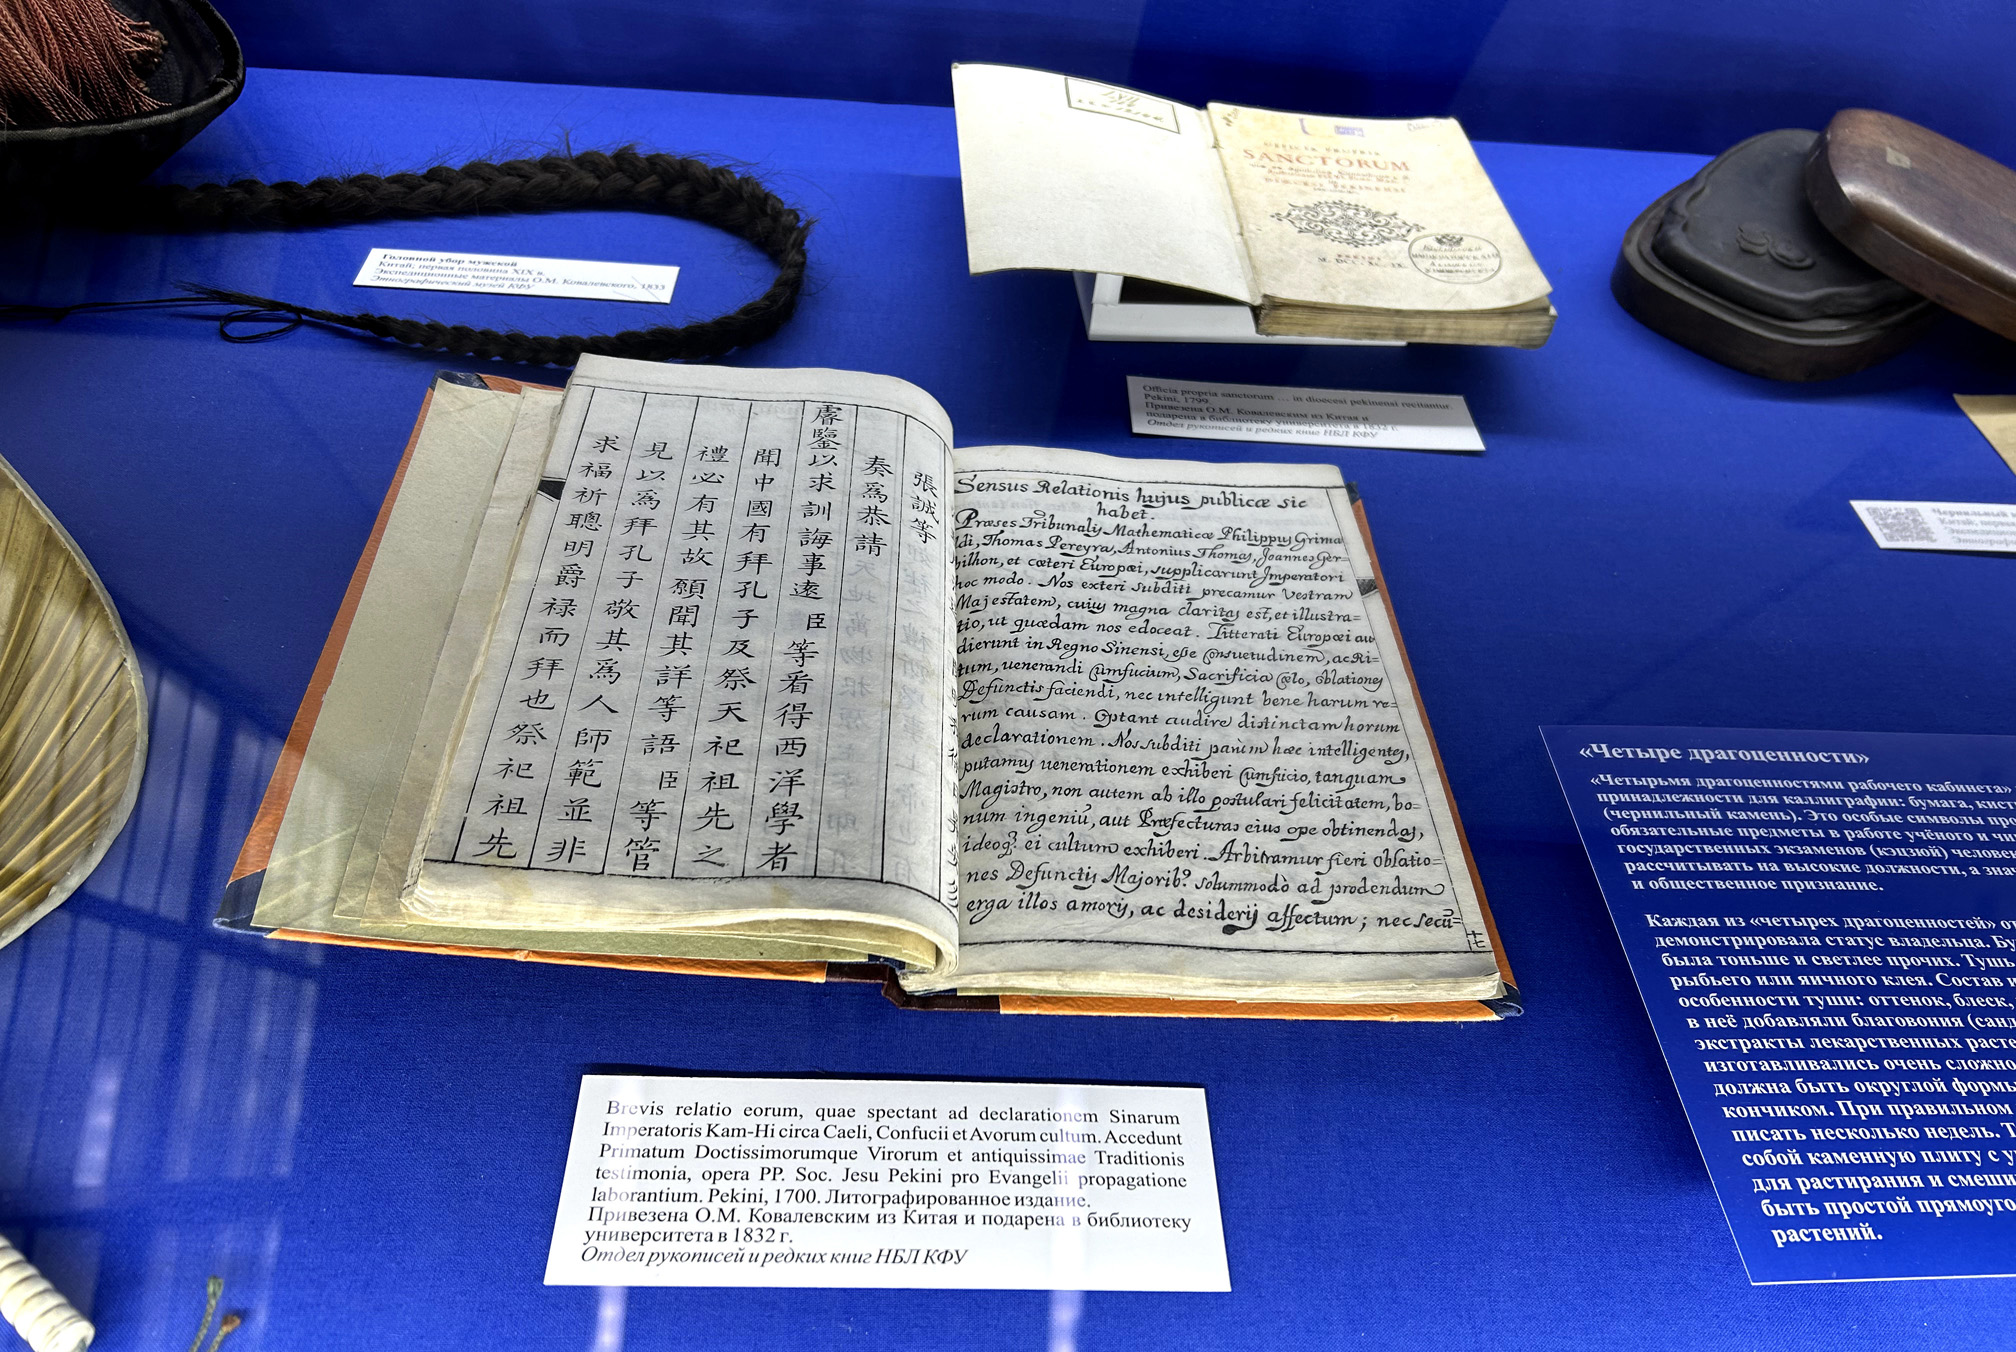 Головной убор мужской
Китай; первая половина XIX в.
Экспедиционные материалы О.М. Ковалевского, 1833
Этнографический музей КФУ
SANCTORUM
Officia propria sanctorum … in dioecesi pekinensi recitantur.
Pekini, 1799.
Привезена О.М. Ковалевским из Китая и
подарена в библиотеку университета в 1832 г.
Отдел рукописей и редких книг НБЛ КФУ
張誠等
奏為恭請
睿鑒以求訓誨事遠臣等看得西洋學者
聞中國有拜孔子及祭天祀祖先之
禮必有其故願聞其詳等語臣等管
見以為拜孔子敬其為人師範並非
求福祈聰明爵祿而拜也祭祀祖先
Sensus Relationis hujus publicæ sic
habet.
Præses Tribunalis Mathematicæ Philippus Grima
ldi, Thomas Pereyra, Antonius Thomas, Joannes Ger-
bilhon, et cœteri Europæi, supplicarunt Imperatori
hoc modo. Nos exteri subditi precamur Vestram
Majestatem, cuius magna claritas est, et illustra=
tio, ut quædam nos edoceat. Litterati Europæi au
dierunt in Regno Sinensi esse consuetudinem, ac Ri-
tum, uenerandi Cumfucium, Sacrificia Cœlo, oblationes
Defunctis faciendi, nec intelligunt bene harum re=
rum causam. Optant audire distinctam horum
declarationem. Nos subditi parùm hæc intelligentes,
putamus uenerationem exhiberi Cumfucio, tanquam
Magistro, non autem ab illo postulari felicitatem, bo=
num ingeniū, aut Præfecturas eius ope obtinendas,
ideoq; ei cultum exhiberi. Arbitramur fieri oblatio=
nes Defunctis Majorib9 solummodò ad prodendum
erga illos amoris, ac desiderij affectum; nec secū=
十七
Brevis relatio eorum, quae spectant ad declarationem Sinarum
Imperatoris Kam-Hi circa Caeli, Confucii et Avorum cultum. Accedunt
Primatum Doctissimorumque Virorum et antiquissimae Traditionis
testimonia, opera PP. Soc. Jesu Pekini pro Evangelii propagatione
laborantium. Pekini, 1700. Литографированное издание.
Привезена О.М. Ковалевским из Китая и подарена в библиотеку
университета в 1832 г.
Отдел рукописей и редких книг НБЛ КФУ
«Четыре драгоценности»
«Четырьмя драгоценностями рабочего кабинета»
принадлежности для каллиграфии: бумага,
(чернильный камень). Это особые символы
обязательные предметы в работе учёного и
государственных экзаменов (кэцзюй)
рассчитывать на высокие должности, а
и общественное признание.
Каждая из «четырех драгоценностей»
демонстрировала статус владельца.
была тоньше и светлее прочих. Тушь
рыбьего или яичного клея. Состав
особенности туши: оттенок, блеск,
в неё добавляли благовония
экстракты лекарственных
изготавливались очень
должна быть округлой
кончиком. При правильном
писать несколько недель.
собой каменную плиту с
для растирания и
быть простой
растений.